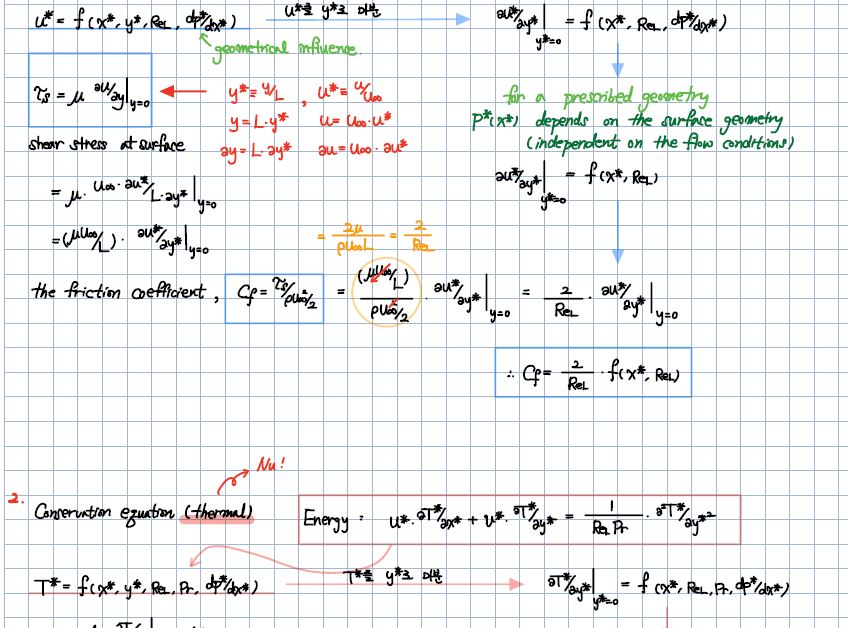 u* = f(x*, y*, ReL, dp*/dx*)
u*를 y*로 미분
∂u*/∂y*|y*=0 = f(x*, ReL, dp*/dx*)
geometrical influence.
τs = μ ∂u/∂y|y=0
y* ≡ y/L , u* ≡ u/u∞
y = L·y* u = u∞·u*
∂y = L·∂y* ∂u = u∞·∂u*
for a prescribed geometry
P*(x*) depends on the surface geometry
(independent on the flow conditions)
shear stress at surface
∂u*/∂y*|y*=0 = f(x*, ReL)
= μ· u∞·∂u*/L·∂y*|y=0
= (μu∞/L)· ∂u*/∂y*|y=0
= 2μ/ρu∞L = 2/ReL
the friction coefficient, Cf = τs/ρu∞²/2 = (μu∞/L)/ρu∞²/2 · ∂u*/∂y*|y=0 = 2/ReL · ∂u*/∂y*|y=0
∴ Cf = 2/ReL · f(x*, ReL)
Nu!
2. Conservation equation (thermal)
Energy : u*·∂T*/∂x* + v*·∂T*/∂y* = 1/ReL Pr · ∂²T*/∂y*²
T* = f(x*, y*, ReL, Pr, dp*/dx*)
T*를 y*로 미분
∂T*/∂y*|y*=0 = f(x*, ReL, Pr, dp*/dx*)